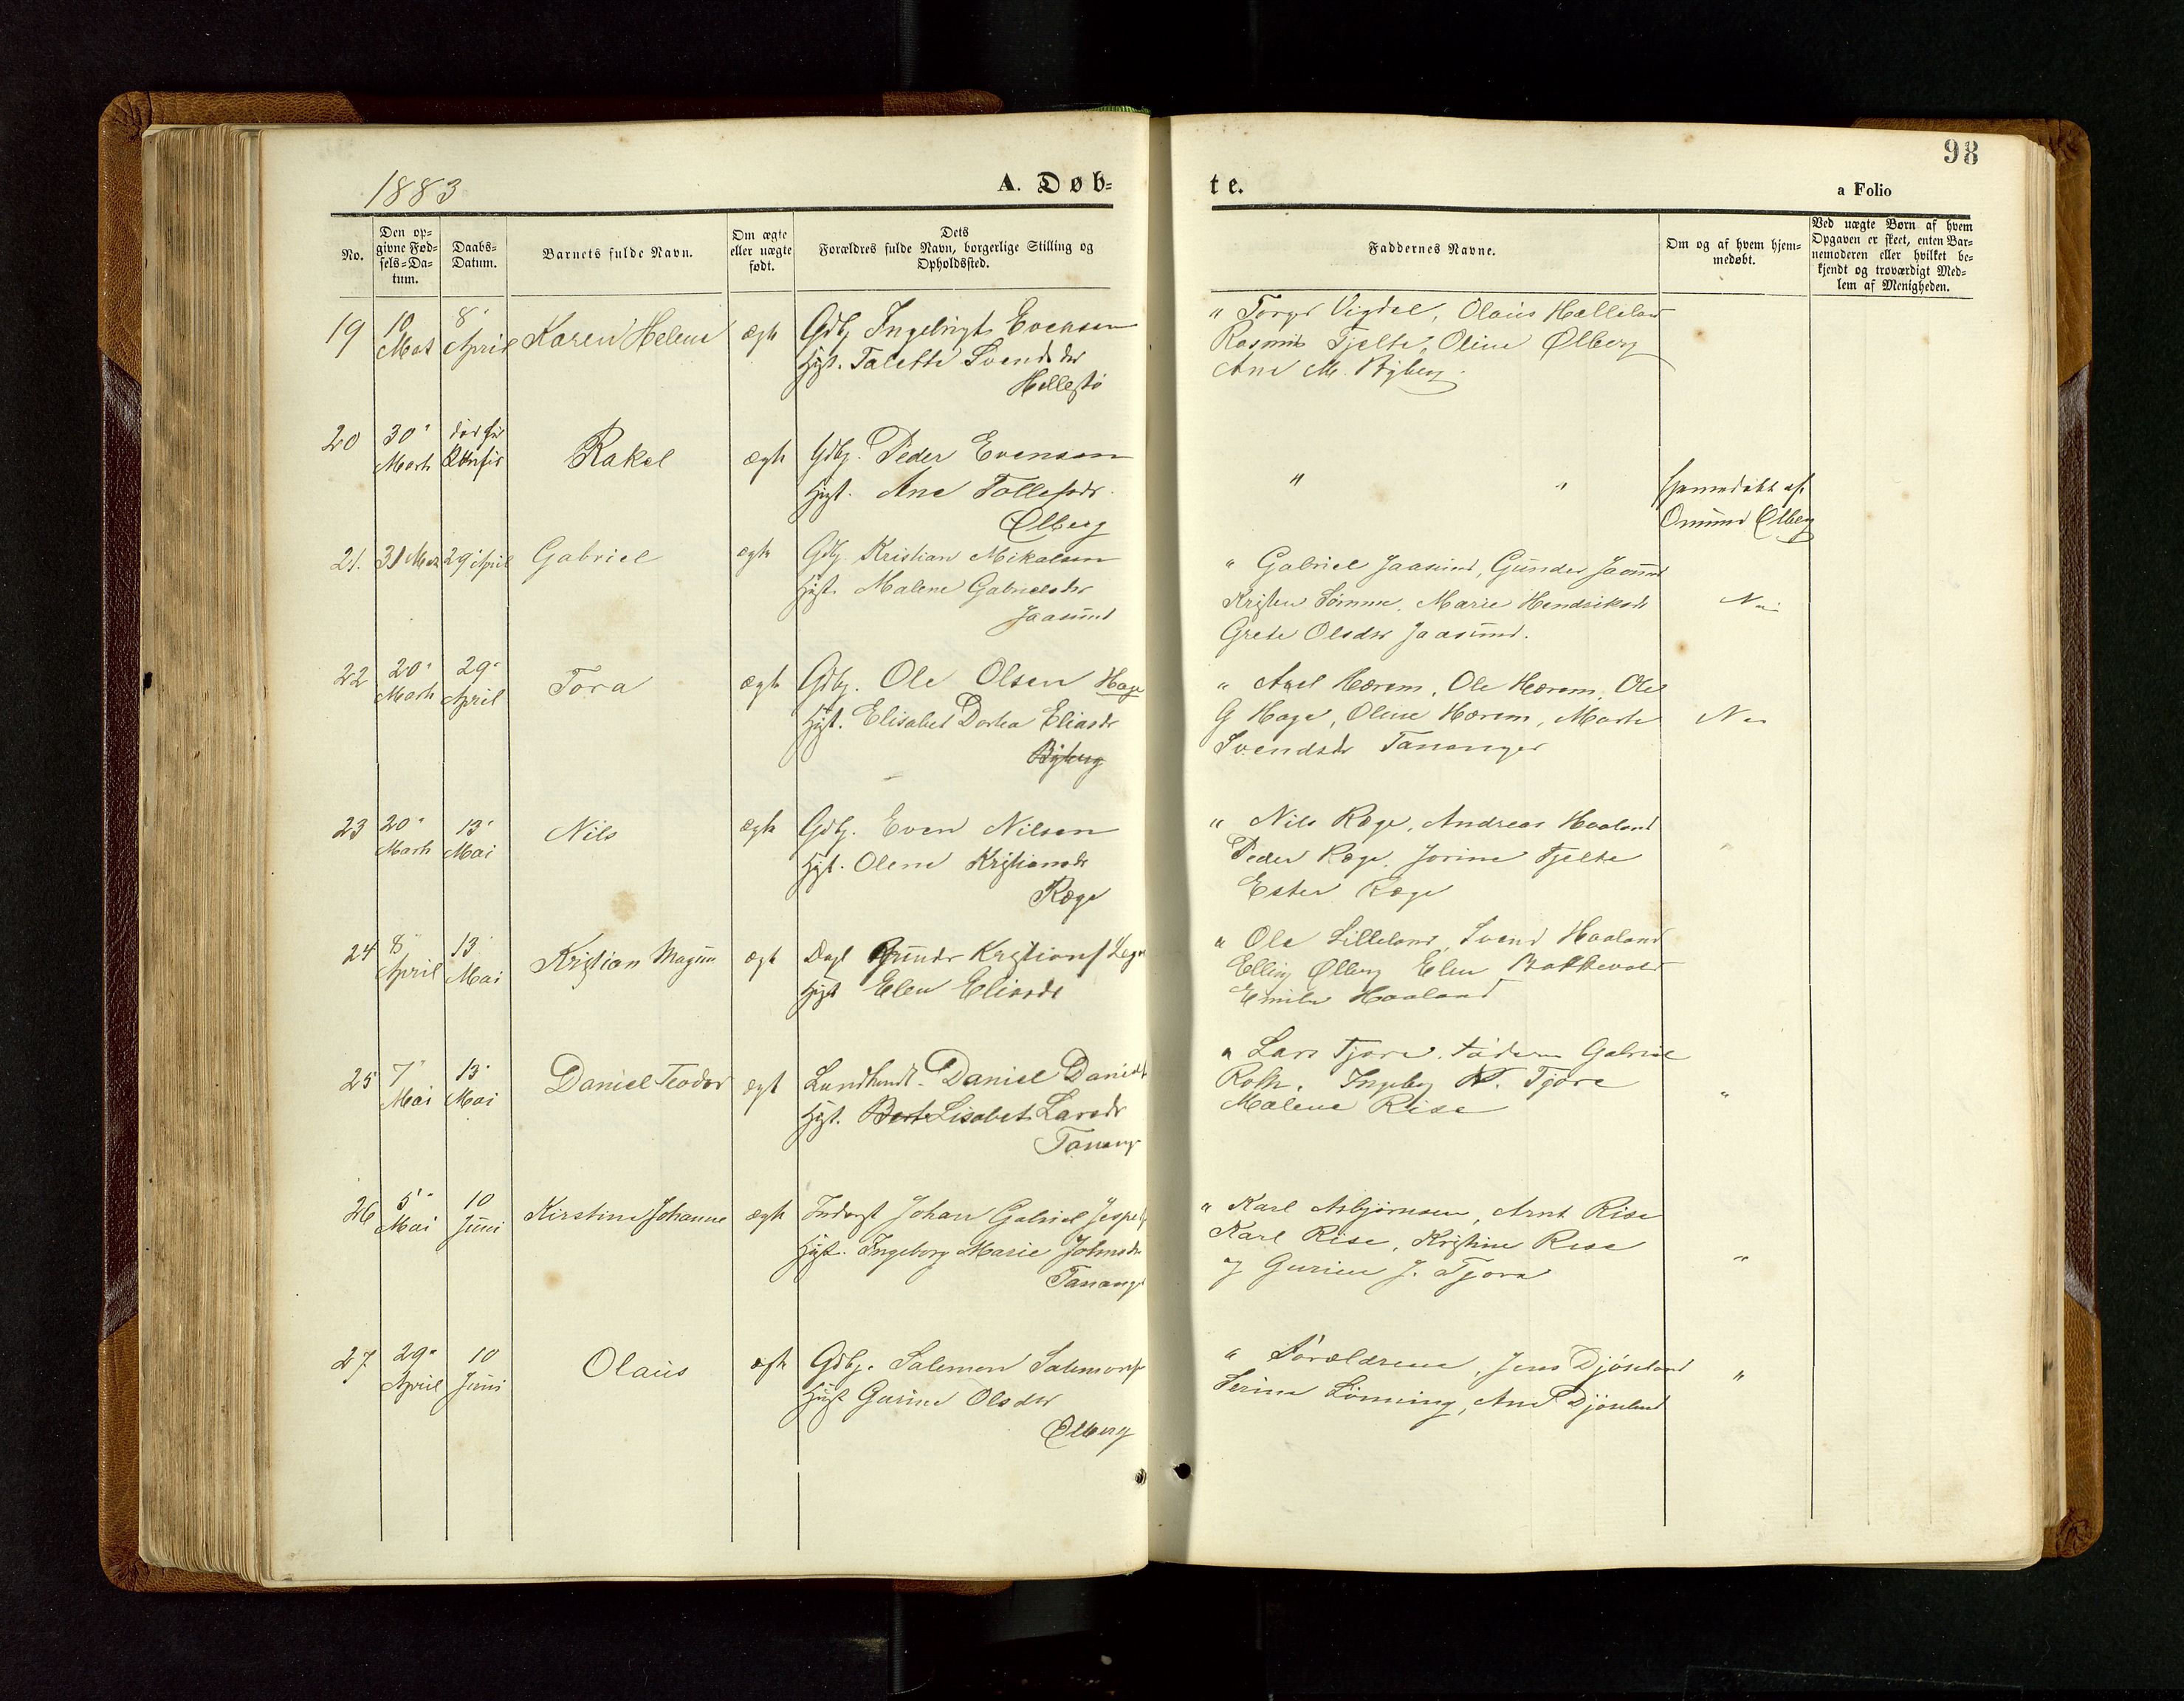 98
1883
A. Døb=
te.
a Folio
No.
Den op=
givne Fød=
sels=Da=
tum.
Daabs=
Datum.
Barnets fulde Navn.
Om ægte
eller uægte
født.
Dets
Forældres fulde Navn, borgerlige Stilling og
Opholdssted.
Faddernes Navne.
Om og af hvem hjem=
medøbt.
Ved uægte Børn af hvem
Opgaven er skeet, enten Bar=
nemoderen eller hvilket be=
kjendt og troværdigt Med=
lem af Menigheden.
19
10
Mat
8
April
Karen Helene
ægte
Gdbj Ingebrigt Evensen
Hust. Talette Svendsdr
Hellestø
" Torger Vigdel, Olaus Halleland
Rasmus Tjelte, Oline Ølberg
Ane M. Byberg
20
30
Marts
Rakel
ægte
Gdbj. Peder Evensen
Hust. Ane Tollefsdr.
Ølberg
" "
Hjemmedøbt af
Omund Ølberg
21.
31 Mar
29 April
Gabriel
ægte
Gdbj Kristian Mikalsen
Hust. Malene Gabrielsdr
Jaasund
" Gabriel Jaasund, Gunder Jaasund
Kristen Sømme, Marie Hendriksdr
Grete Olsdr Jaasund.
Nei
22
20
Marts
29
April
Tora
ægte
Gdbj. Ole Olsen Haga
Hust. Elisabet Dortea Eliasdr
Byberg
" Axel Hærem, Ole Hærem, Ole
G Haga, Oline Hærem, Marte
Svendsdr Tananger
Nei
23
20
Marts
13
Mai
Nils
ægte
Gdbj. Even Nilsen
Hust. Olene Kristiansdr
Ræge
" Nils Ræge, Andreas Haaland
Peder Ræge, Jorine Tjelte
Ester Ræge
24
8
April
13
Mai
Kristian Magnus
ægte
Dagl Gunder Kristians
Hust Elen Eliasdr
" Ole Lilleland, Svend Haaland
Elling Ølberg Elen Bakkevold
Emilie Haaland
25
7
Mai
13
Mai
Daniel Teodor
ægt
Landhandl. Daniel Daniels
Hust. Berte Lisabet Larsdr
Tanang
" Lars Tjora, Faderen Gabriel
Roth, Ingeborg Tjora
Malene Risa
"
26
5
Mai
10
Juni
Kirstine Johanne
ægte
Inderst Johan Gabriel Jespers
Hust. Ingeborg Marie Johnsdr
Tanang
" Karl Asbjørnsen, Arnt Risa
Karl Risa, Kristine Risa
og Gurine J. Tjora
"
27
29
April
10
Juni
Olaus
ægte
Gdbj. Salemon Salemons
Hust Gurine Olsdr
Ølberg
" Forældrene, Jens Djøseland
Serine Lønning, Ane Djøseland
"